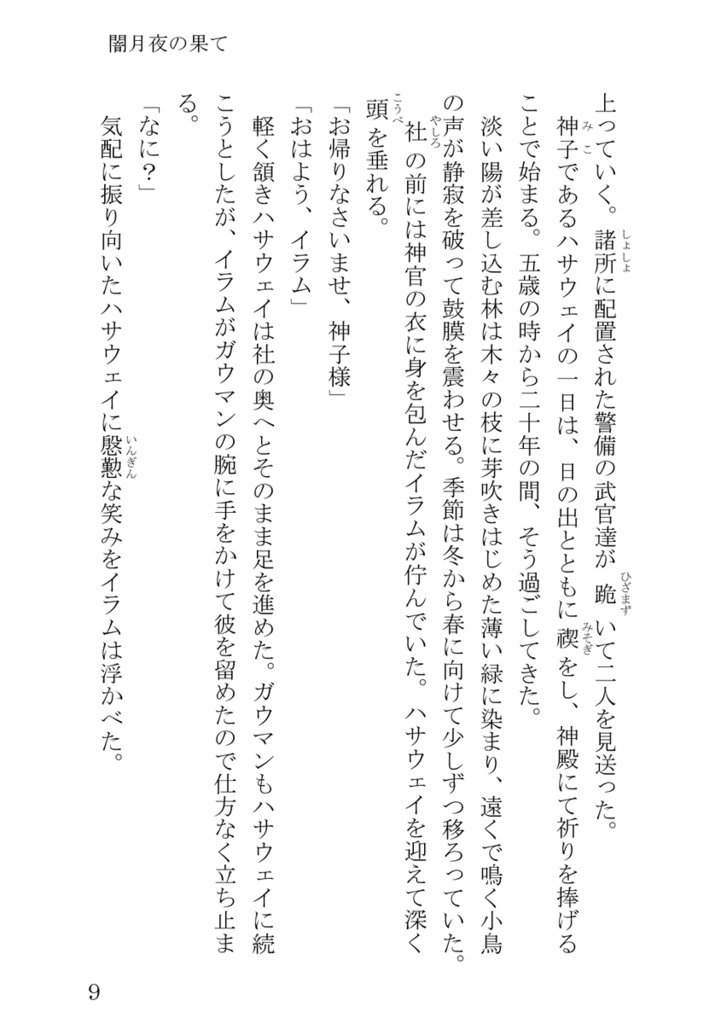 闇月夜の果て
上っていく。諸所に配置された警備の武官達が跪いて二人を見送った。
しょしょ
ひざまず
神子であるハサウェイの一日は、日の出とともに禊をし、神殿にて祈りを捧げる
みこ
みそぎ
ことで始まる。五歳の時から二十年の間、そう過ごしてきた。
淡い陽が差し込む林は木々の枝に芽吹きはじめた薄い緑に染まり、遠くで鳴く小鳥
の声が静寂を破って鼓膜を震わせる。季節は冬から春に向けて少しずつ移ろっていた。
社の前には神官の衣に身を包んだイラムが佇んでいた。ハサウェイを迎えて深く
やしろ
頭を垂れる。
こうべ
「お帰りなさいませ、神子様」
「おはよう、イラム」
軽く頷きハサウェイは社の奥へとそのまま足を進めた。ガウマンもハサウェイに続
こうとしたが、イラムがガウマンの腕に手をかけて彼を留めたので仕方なく立ち止ま
る。
「なに？」
気配に振り向いたハサウェイに慇懃な笑みをイラムは浮かべた。
いんぎん
9